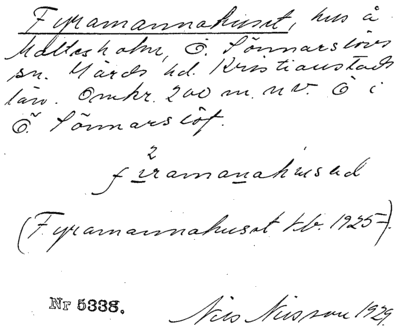 Fyramannahuset, hus å
Maltesholm, Ö. Sönnarslövs
sn. Gärds hd. Kristianstads
län. Omkr. 200 m. n.v. Ö i
Ö Sönnarslöf.
2
firamanahused
(Fyramannahuset kb. 1925-).
Nr 5338.
Nils Nilsson 1929.